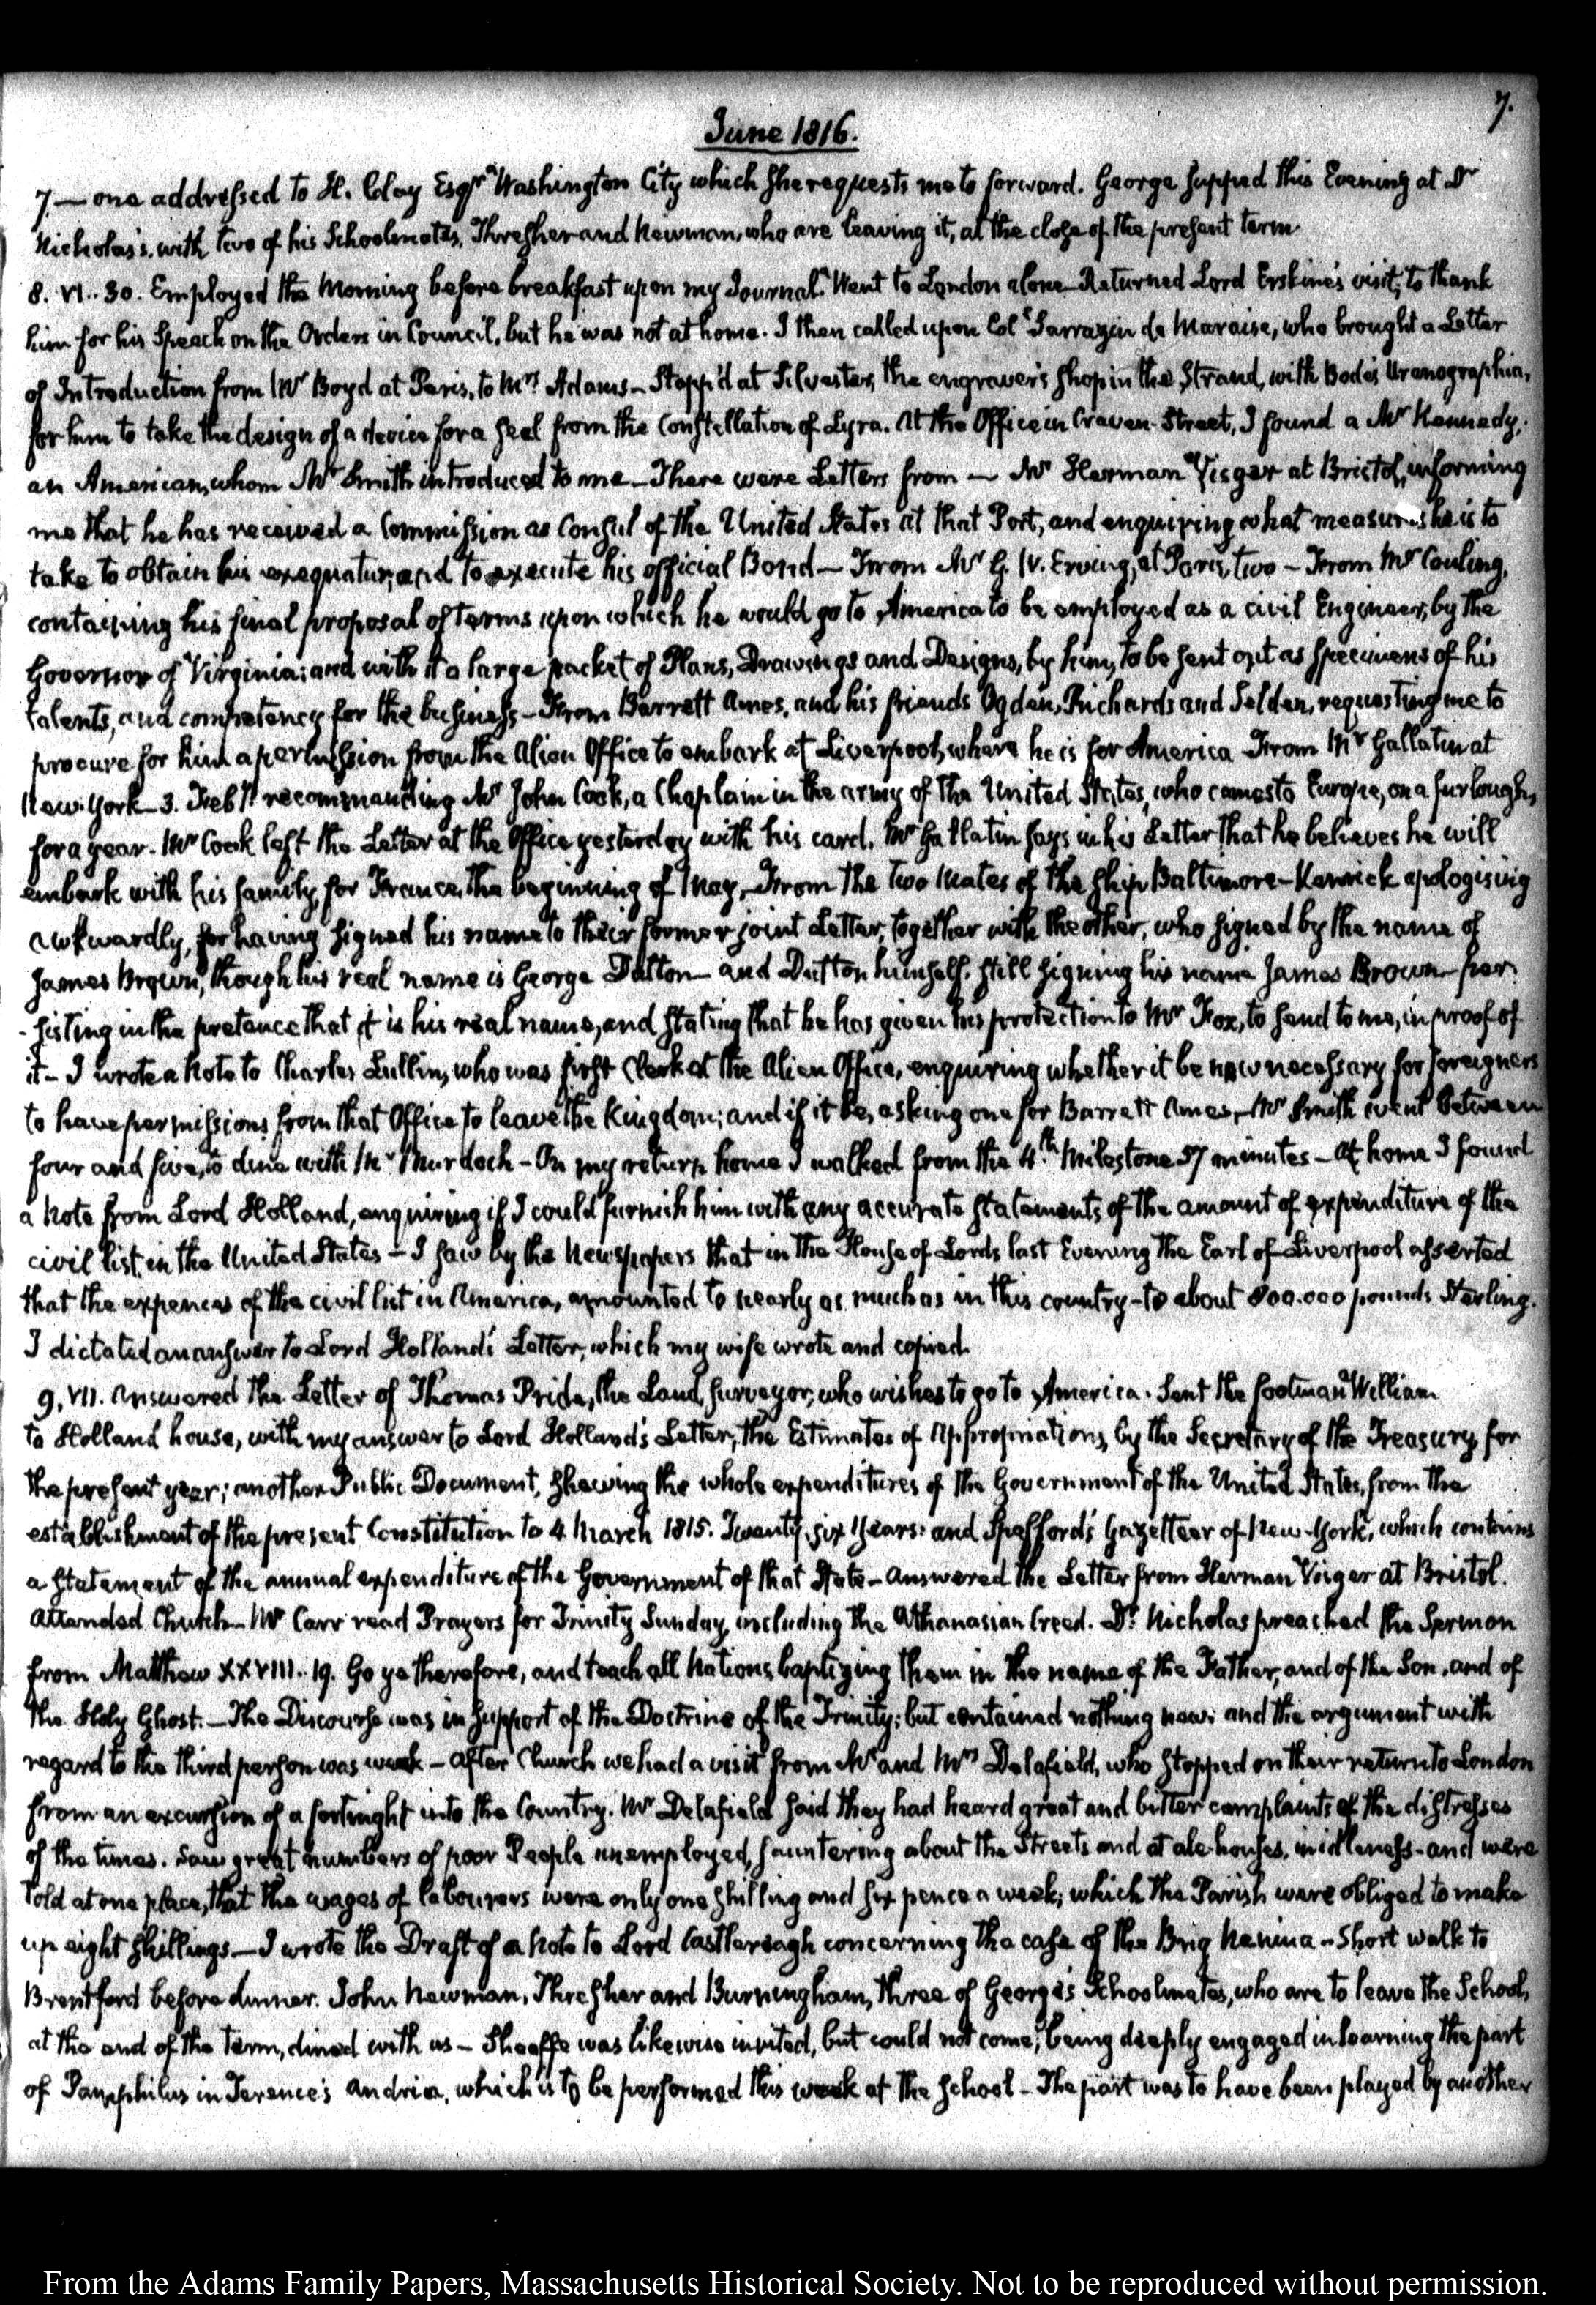 7.
June 1816.
7.— one addressed to H. Clay Esqr. Washington City which she requests me to forward. George supped this Evening at Dr
Nicholas's. with two of his Schoolmates, Thresher and Newman, who are leaving it, at the close of the present term
8. VI..30. Employed the Morning before breakfast upon my Journal. Went to London alone—Returned Lord Erskine's visit, to thank
him for his Speech on the Orders in Council, but he was not at home. I then called upon Col Sarrazin de Maraise, who brought a Letter
of Introduction from Mr Boyd at Paris, to Mrs Adams—Stopp'd at Silvester, the engraver's shop in the Strand, with Bode's Uranographia,
for him to take the design of a device for a seal from the Constellation of Lyra. At the Office in Craven-Street, I found a Mr Kennedy,
an American, whom Mr Smith introduced to me—There were Letters from — Mr Herman Visger at Bristol, informing
me that he has received a Commission as Consul of the United States at that Port, and enquiring what measures he is to
take to obtain his exequatur, and to execute his official Bond—From Mr G. W. Erving, at Paris, two—From Mr Couling,
containing his final proposal of terms upon which he would go to America to be employed as a civil Engineer, by the
Governor of Virginia; and with it a large packet of Plans, Drawings and Designs, by him, to be sent out as specimens of his
talents, and competency for the business—From Barrett Ames, and his friends Ogden, Richards and Selden, requesting me to
procure for him a permission from the Alien Office to embark at Liverpool, where he is for America From Mr Gallatin at
New-York—3. Feby. recommending Mr John Cook, a Chaplain in the army of the United States, who comes to Europe, on a furlough,
for a year. Mr Cook left the Letter at the Office yesterday with his card. Mr Gallatin says in his Letter that he believes he will
embark with his family, for France, the beginning of May—From the two Mates of the Ship Baltimore—Kenrick apologising
awkwardly, for having signed his name to their former joint Letter, together with the other, who signed by the name of
James Brown, though his real name is George Dutton—and Dutton himself, still signing his name James Brown—per-
-sisting in the pretence that it is his real name, and stating that he has given his protection to Mr Fox, to send to me, in proof of
it—I wrote a Note to Charles Lullin, who was first Clerk at the Alien Office, enquiring whether it be now necessary for foreigners
to have permissions from that Office to leave the Kingdom; and if it be, asking one for Barrett Ames—Mr Smith went between
four and five, to dine with Mr Murdoch—On my return home I walked from the 4.th Milestone 57 minutes—At home I found
a Note from Lord Holland, enquiring if I could furnish him with any accurate statements of the amount of expenditure of the
civil list, in the United States—I saw by the Newspapers that in the House of Lords last Evening the Earl of Liverpool asserted
that the expences of the civil list in America, amounted to nearly as much as in this country—to about 800.000 pounds Sterling.
I dictated an answer to Lord Holland's Letter, which my wife wrote and copied.
9. VII. Answered the Letter of Thomas Pride, the Land Surveyor, who wishes to go to America. Sent the footman William
to Holland house, with my answer to Lord Holland's Letter, the Estimates of Appropriations, by the Secretary of the Treasury, for
the present year; another Public Document, shewing the whole expenditures of the Government of the United States, from the
establishment of the present Constitution to 4. March 1815. Twenty-six Years: and Spafford's Gazetteer of New-York, which contains
a statement of the annual expenditure of the Government of that State—Answered the Letter from Herman Visger at Bristol.
Attended Church—Mr Carr read Prayers for Trinity Sunday, including the Athanasian Creed. Dr. Nicholas preached the Sermon
from Matthew XXVIII..19. Go ye therefore, and teach all Nations, baptizing them in the name of the Father, and of the Son, and of
the Holy Ghost.—The Discourse was in support of the Doctrine of the Trinity; but contained nothing new; and the argument with
regard to the third person was weak—After Church we had a visit from Mr and Mrs Delafield, who stopped on their return to London
from an excursion of a fortnight into the Country. Mr Delafield said they had heard great and bitter complaints of the distresses
of the times. Saw great numbers of poor People unemployed, sauntering about the Streets and at ale-houses, in idleness—and were
told at one place, that the wages of labourers were only one shilling and six pence a week; which the Parish were obliged to make
up eight shillings—I wrote the Draft of a Note to Lord Castlereagh concerning the case of the Brig Nanina—Short walk to
Brentford before dinner. John Newman, Thresher and Burningham, three of George's Schoolmates, who are to leave the School,
at the end of the term, dined with us—Sheaffe was likewise invited, but could not come; being deeply engaged in learning the part
of Pamphilus in Terence's Andria, which is to be performed this week at the School—The part was to have been played by another
From the Adams Family Papers, Massachusetts Historical Society. Not to be reproduced without permission.